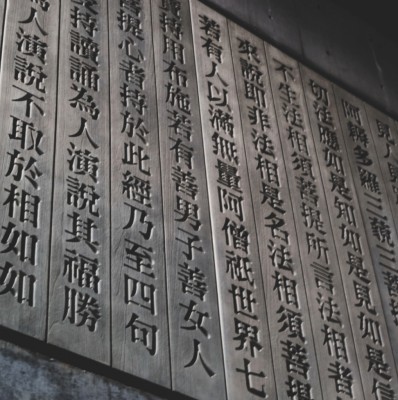 見人見
阿耨多羅三藐三菩
切法應如是知如是見如是信
不生法相須菩提所言法相者
來說即非法相是名法相須菩提
若有人以滿無量阿僧祇世界七
持用布施若有善男子善女人
菩提心者持於此經乃至四句
受持讀誦為人演說其福勝
為人演說不取於相如如